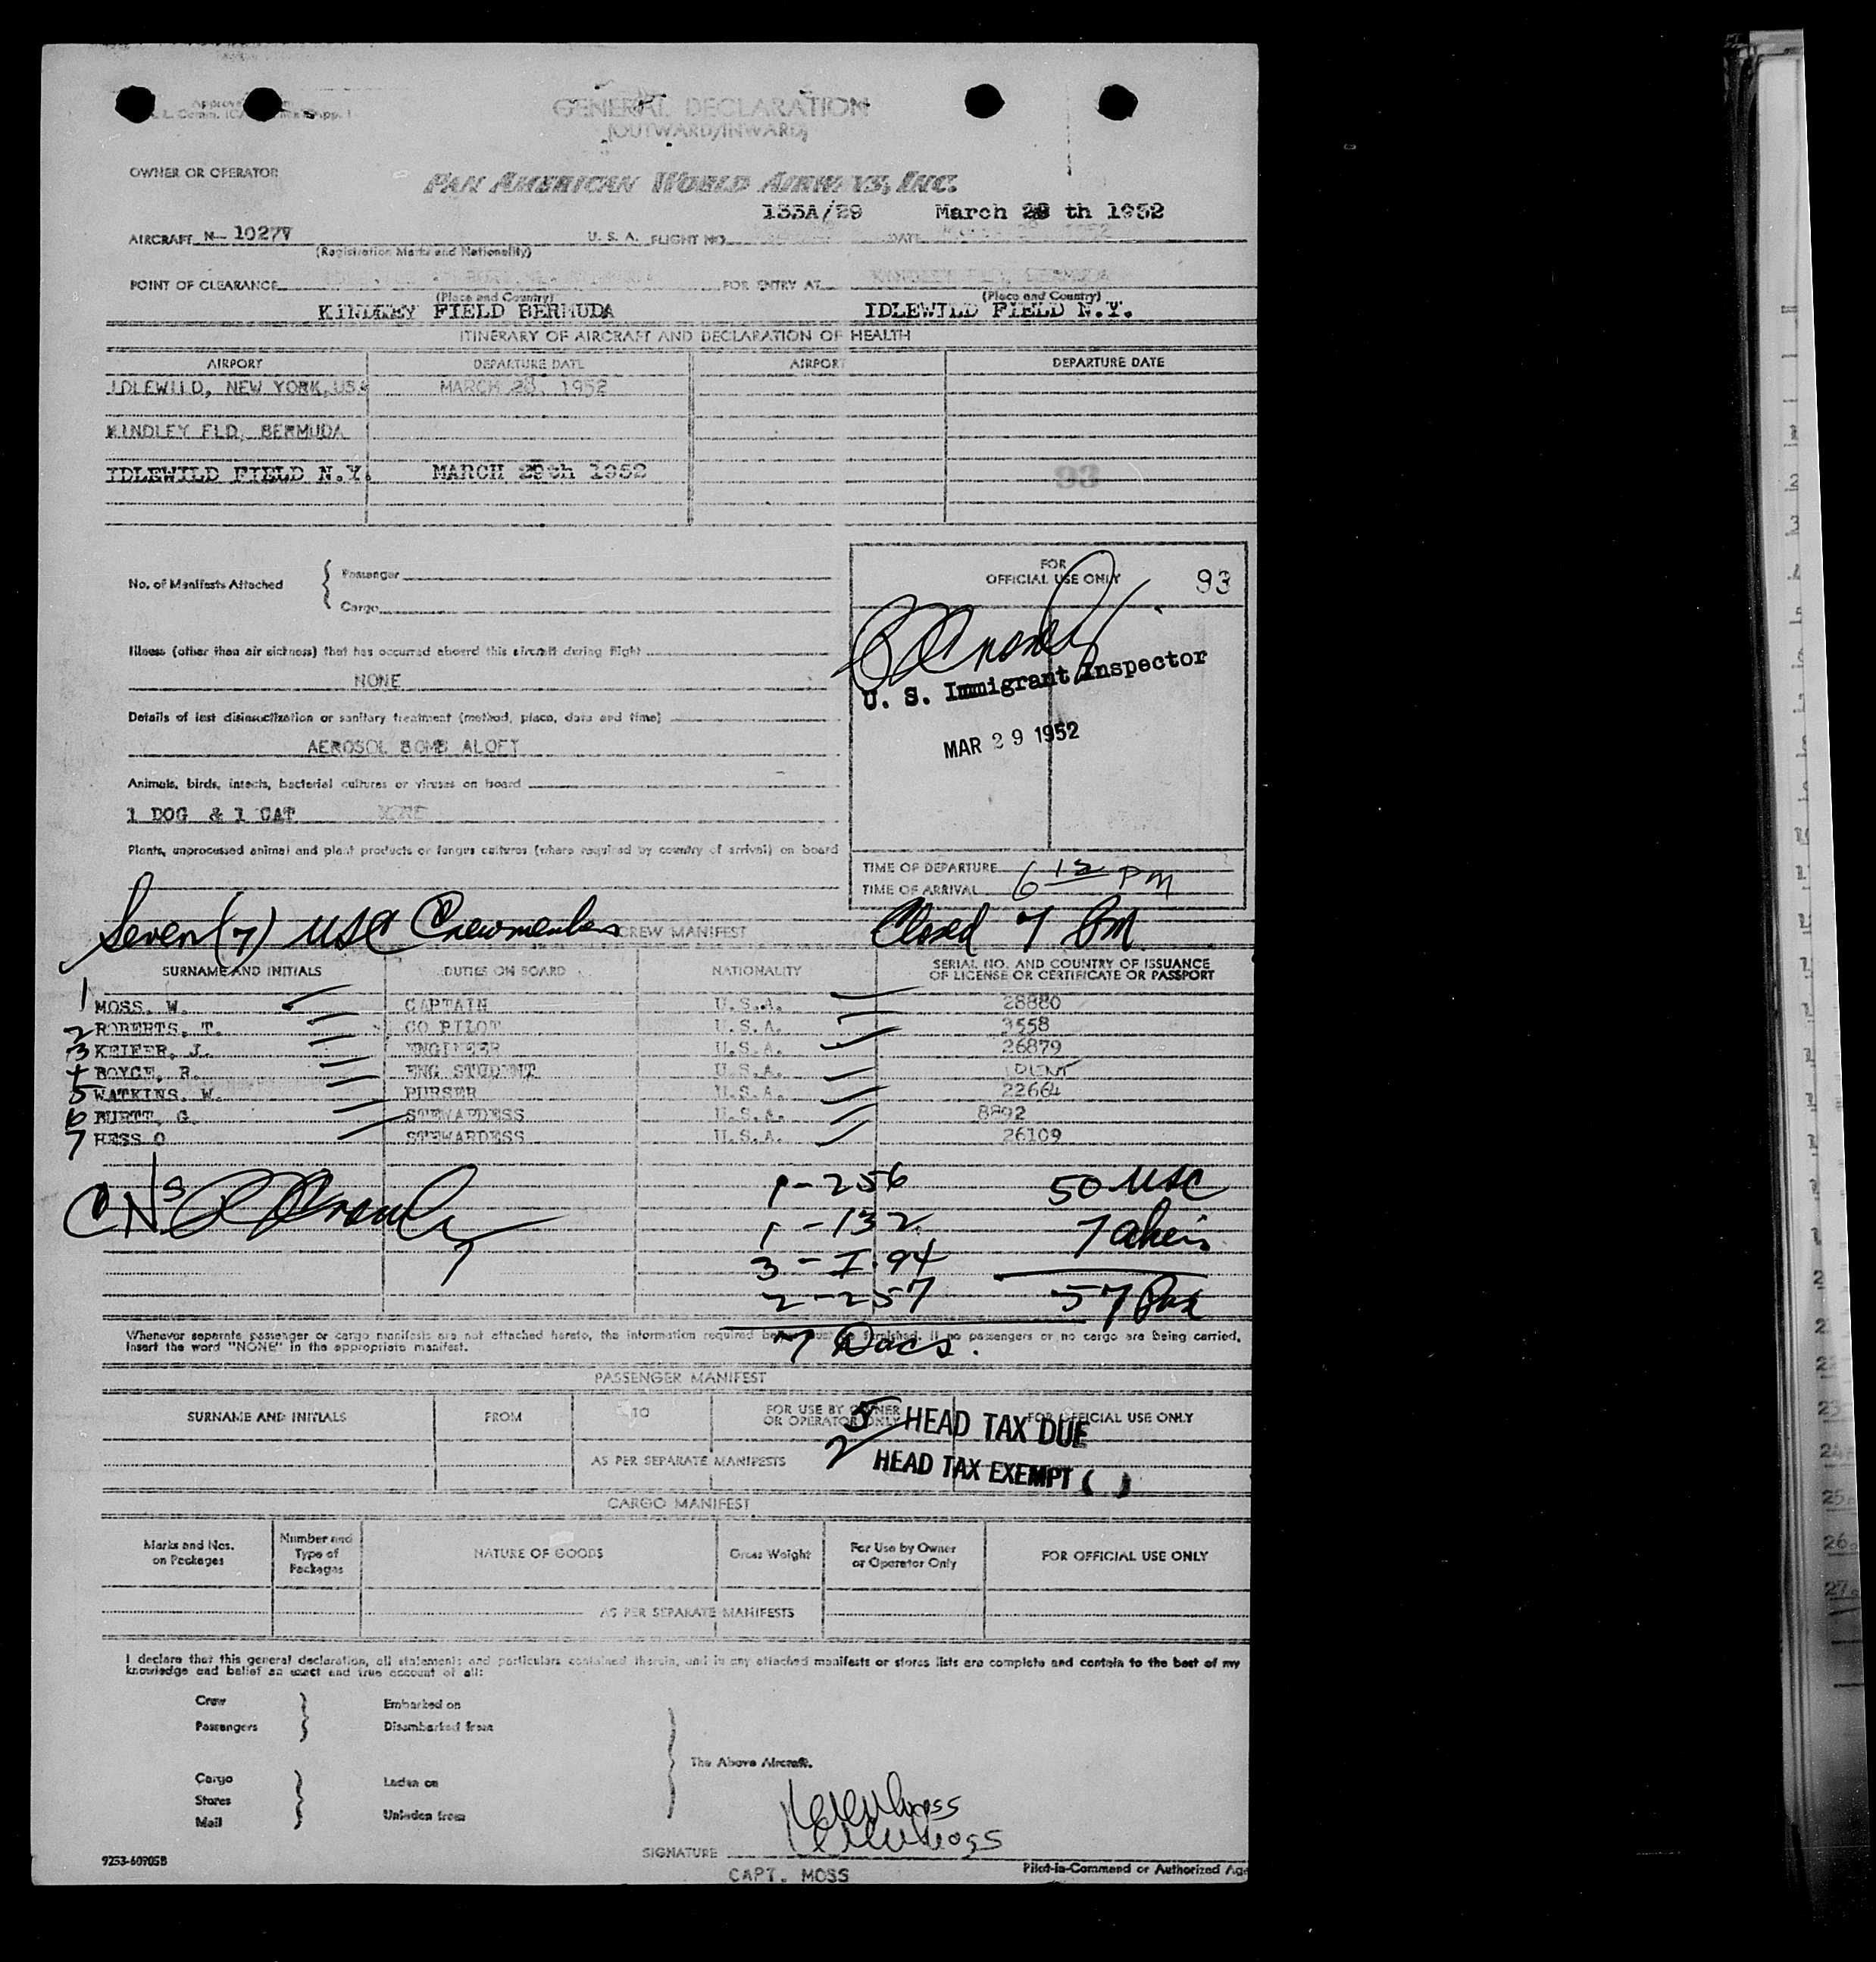 GENERAL DECLARATION
(OUTWARD/INWARD)
OWNER OR OPERATOR
PAN AMERICAN WORLD AIRWAYS, INC.
133A/29 March 29 th 1952
AIRCRAFT N- 1027V U. S. A. FLIGHT NO. DATE
(Registration Marks and Nationality)
POINT OF CLEARANCE FOR ENTRY AT KINDLEY FLD, BERMUDA
(Place and Country) (Place and Country)
KINDLEY FIELD BERMUDA IDLEWILD FIELD N.Y.
ITINERARY OF AIRCRAFT AND DECLARATION OF HEALTH
AIRPORT DEPARTURE DATE AIRPORT DEPARTURE DATE
IDLEWILD, NEW YORK, USA MARCH 28, 1952
KINDLEY FLD, BERMUDA
IDLEWILD FIELD N.Y. MARCH 29th 1952
93
FOR
OFFICIAL USE ONLY 93
No. of Manifests Attached { Passenger
Cargo
Illness (other than air sickness) that has occurred aboard this aircraft during flight
NONE
U. S. Immigrant Inspector
Details of last disinsectization or sanitary treatment (method, place, date and time)
MAR 29 1952
AEROSOL BOMB ALOFT
Animals, birds, insects, bacterial cultures or viruses on board
1 DOG & 1 CAT NONE
Plants, unprocessed animal and plant products or fungus cultures (where required by country of arrival) on board
TIME OF DEPARTURE
TIME OF ARRIVAL 6 12 PM
Seven (7) USC Crewmembers CREW MANIFEST Closed 7 PM
SURNAME AND INITIALS DUTIES ON BOARD NATIONALITY SERIAL NO. AND COUNTRY OF ISSUANCE
OF LICENSE OR CERTIFICATE OR PASSPORT
1 MOSS, W. CAPTAIN U.S.A. 28880
2 ROBERTS, T. CO PILOT U.S.A. 3558
3 KEIFER, J. ENGINEER U.S.A. 26879
4 BOYCE, R. ENG STUDENT U.S.A.
5 WATKINS, W. PURSER U.S.A. 22664
6 BURTT, G. STEWARDESS U.S.A. 8892
7 HESS O STEWARDESS U.S.A. 26109
1-256 50 USC
1-132 7 aliens
3-I.94
2-257 57 Pax
Whenever separate passenger or cargo manifests are not attached hereto, the information required below must be furnished. If no passengers or no cargo are being carried,
insert the word "NONE" in the appropriate manifest.
7 Docs.
PASSENGER MANIFEST
SURNAME AND INITIALS FROM TO FOR USE BY OWNER
OR OPERATOR ONLY FOR OFFICIAL USE ONLY
5 HEAD TAX DUE
AS PER SEPARATE MANIFESTS
2 HEAD TAX EXEMPT ( )
CARGO MANIFEST
Marks and Nos.
on Packages Number and
Type of
Packages NATURE OF GOODS Gross Weight For Use by Owner
or Operator Only FOR OFFICIAL USE ONLY
AS PER SEPARATE MANIFESTS
I declare that this general declaration, all statements and particulars contained therein, and in any attached manifests or stores lists are complete and contain to the best of my
knowledge and belief an exact and true account of all:
Crew Embarked on
Passengers Disembarked from
The Above Aircraft.
Cargo Laden on
Stores
Mail Unladen from
SIGNATURE
9253-60905B
Pilot-in-Command or Authorized Ag
CAPT. MOSS